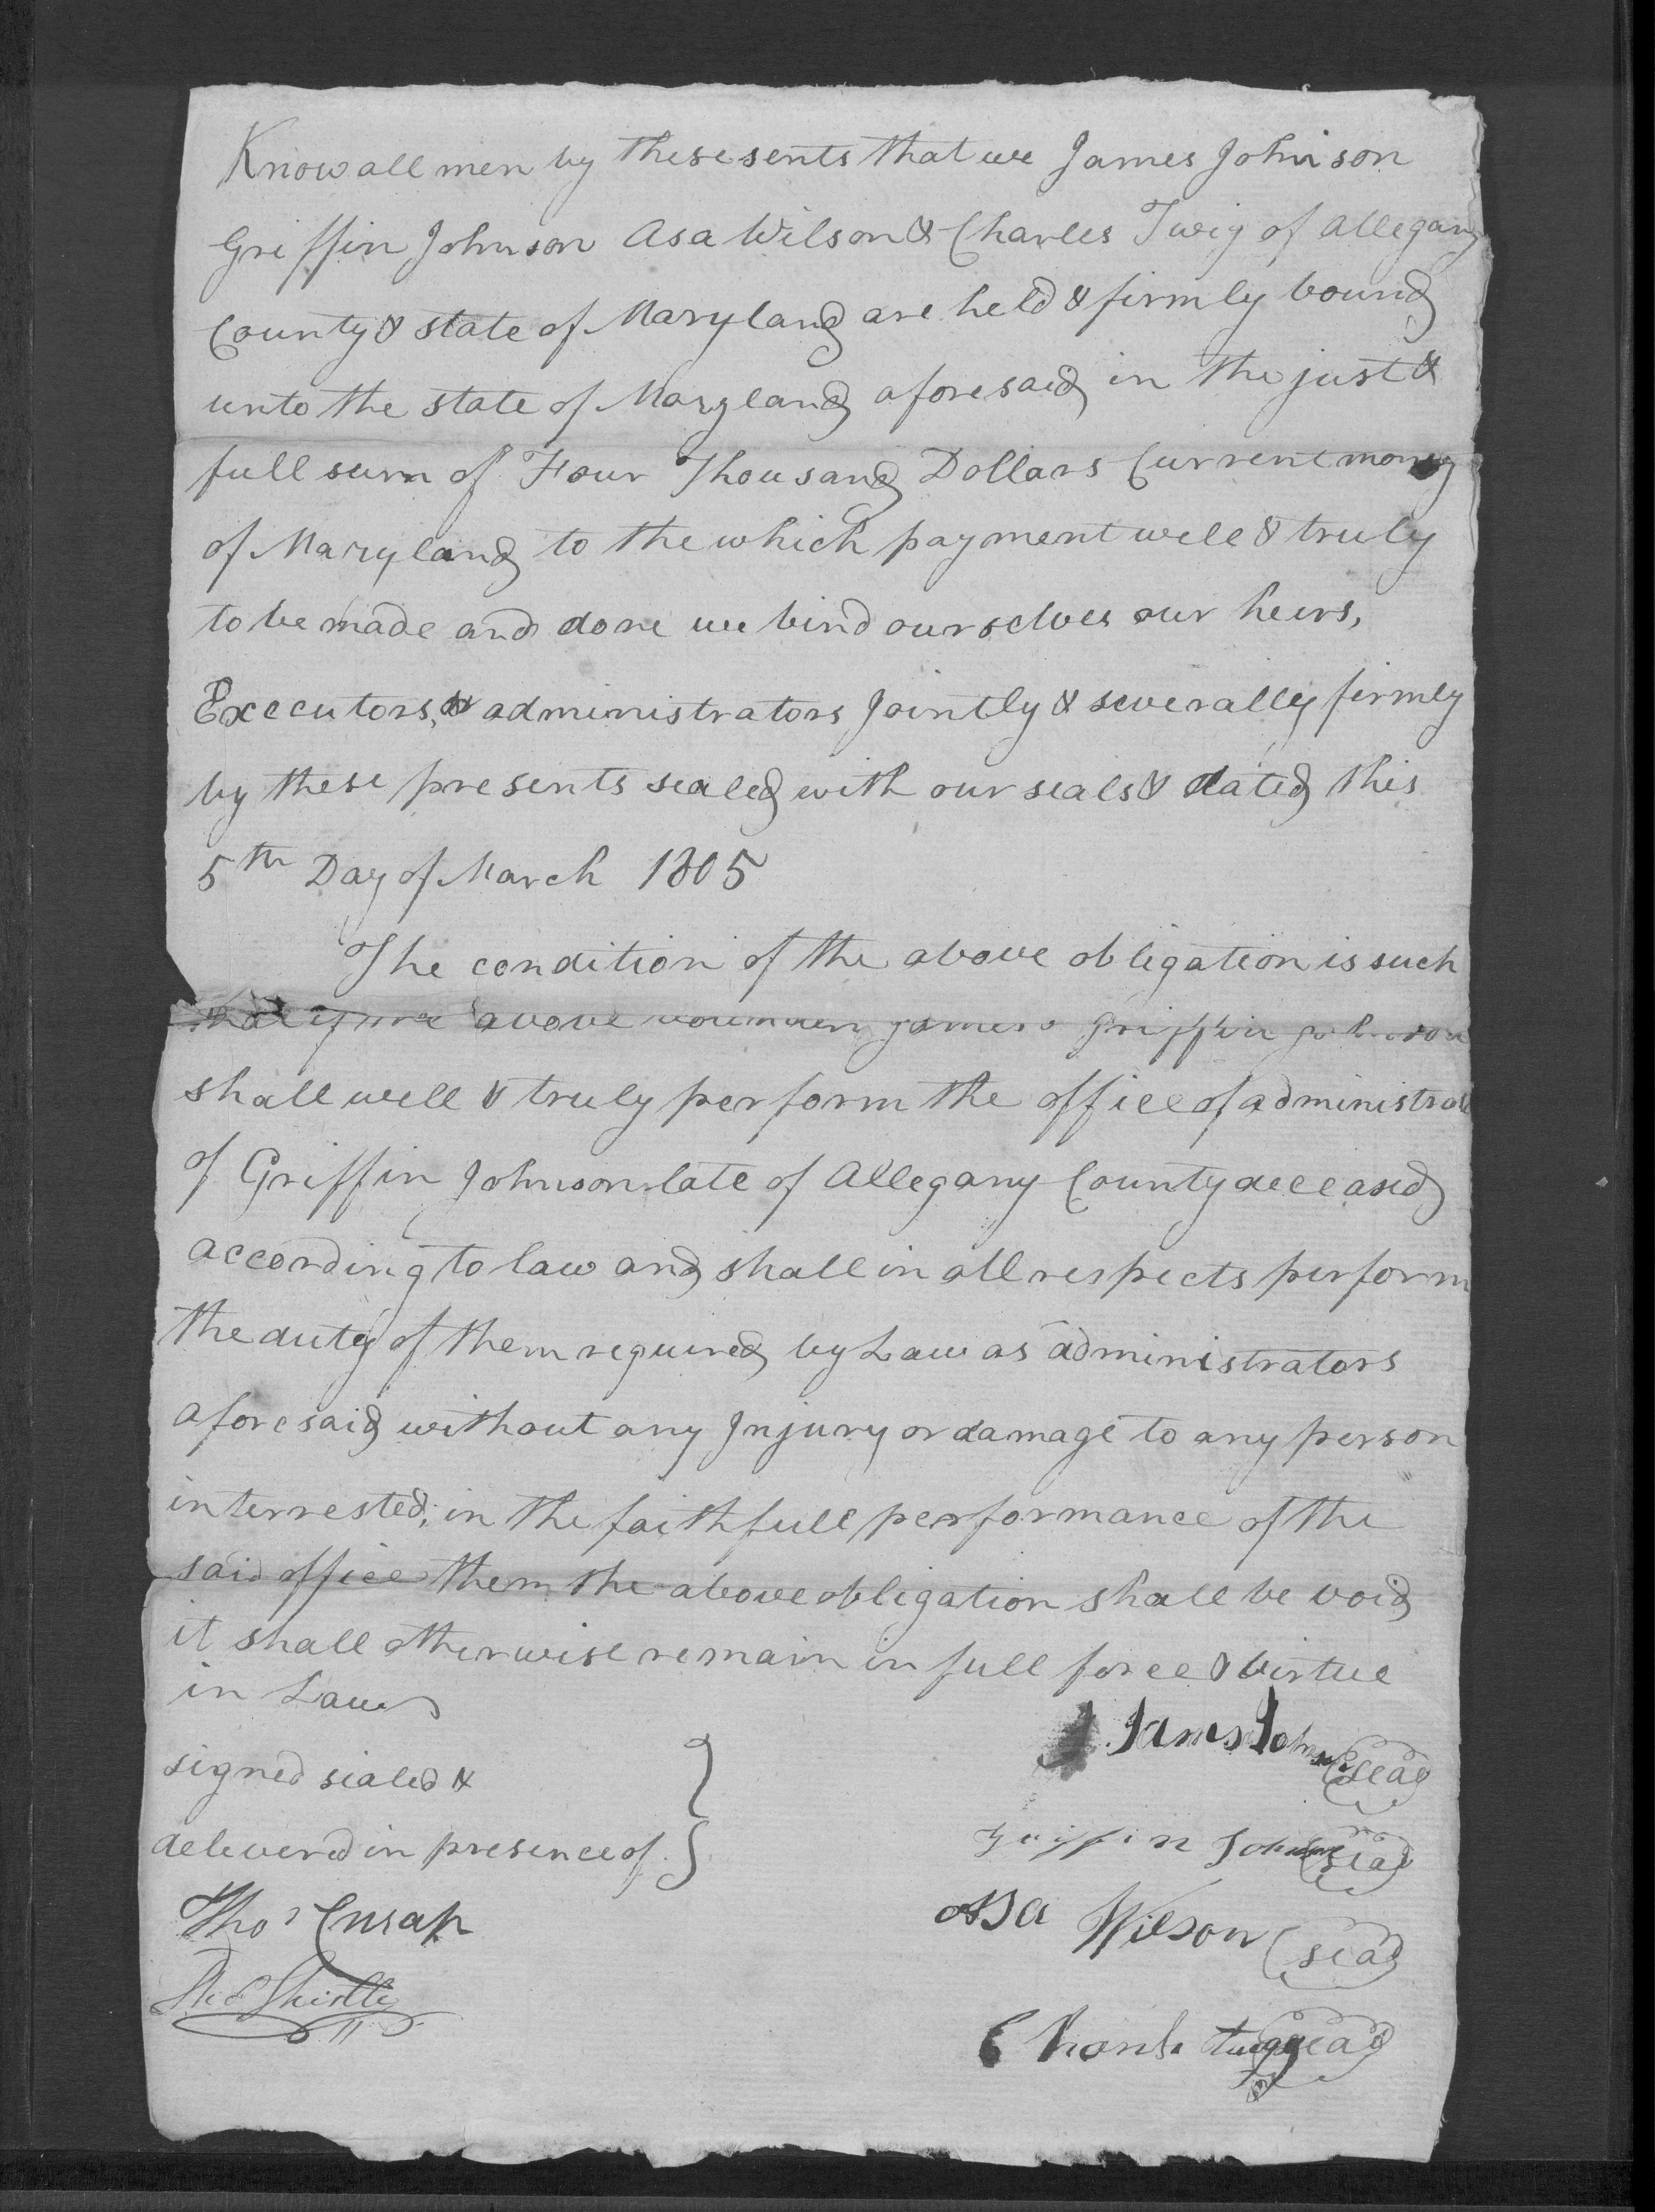 Know all men by these sents that we James Johnson
Griffin Johnson Asa Wilson & Charles Twig of Allegany
County & state of Maryland are held & firmly bound
unto the state of Maryland aforesaid in the just &
full sum of Four Thousand Dollars Current money
of Maryland to the which payment well & truly
to be made and done we bind ourselves our heirs,
Executors, & administrators Jointly & severally firmly
by these presents sealed with our seals & dated this
5th Day of March 1805
The condition of the above obligation is such
that if the above bounden James & Griffin Johnson
shall well & truly perform the office of administrat
of Griffin Johnson late of Allegany County deceased
according to law and shall in all respects perform
the duty of them required by Law as administrators
aforesaid without any Injury or damage to any person
interrested, in the faithfull performance of the
said office them the above obligation shall be void
it shall otherwise remain in full force & virtue
in Law
signed sealed &
delevered in presence of
James Johnson seal
Griffin Johnson seal
Asa Wilson seal
Charls twigg seal
Thos Cresap